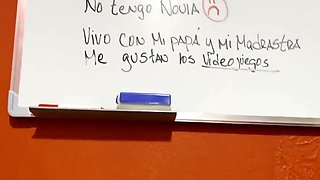 No tengo Novia
Vivo con Mi papá y mi Madrastra
Me gustan los Videojuegos